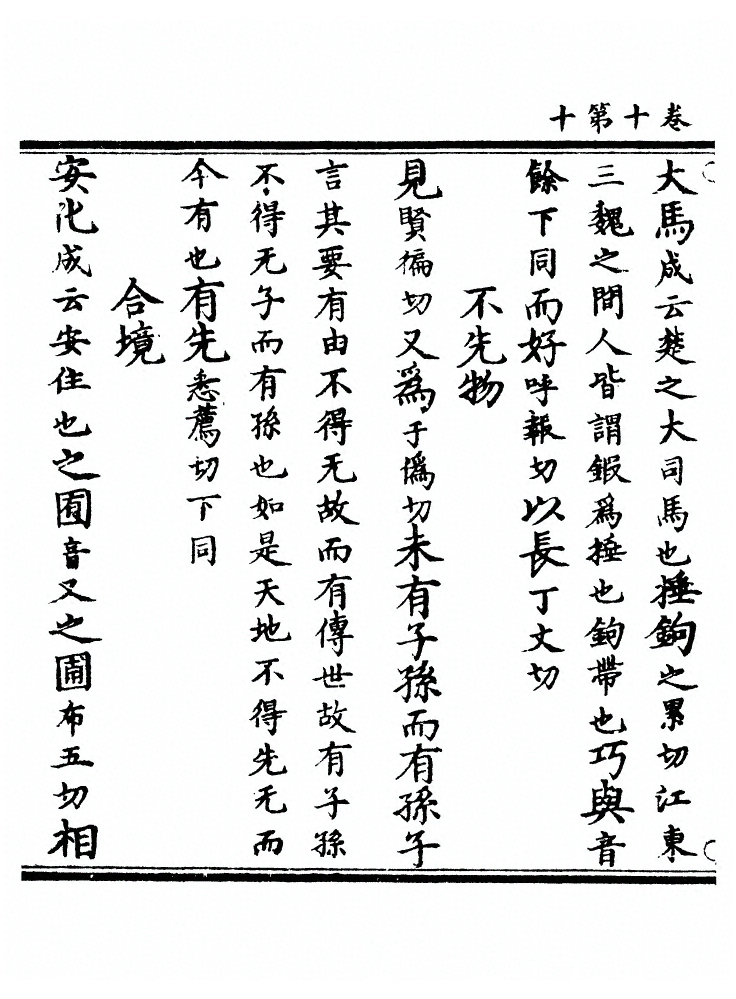 卷十第十
大馬成云楚之大司馬也捶鉤之累切江東
三魏之間人皆謂鍜爲捶也鉤帶也巧與音
餘下同而好呼報切以長丁丈切
不先物
見賢徧切又爲于僞切未有子孫而有孫子
言其要有由不得无故而有傳世故有子孫
不得无子而有孫也如是天地不得先无而
今有也有先悉薦切下同
合境
安化成云安住也之囿音又之圃布五切相